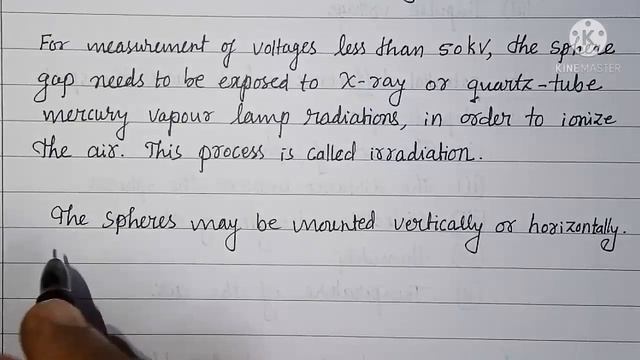 For measurement of voltages less than 50kV, the sphere
gap needs to be exposed to X-ray or quartz-tube
mercury vapour lamp radiations, in order to ionize
the air. This process is called irradiation.
The spheres may be mounted vertically or horizontally.
K
KINEMASTER